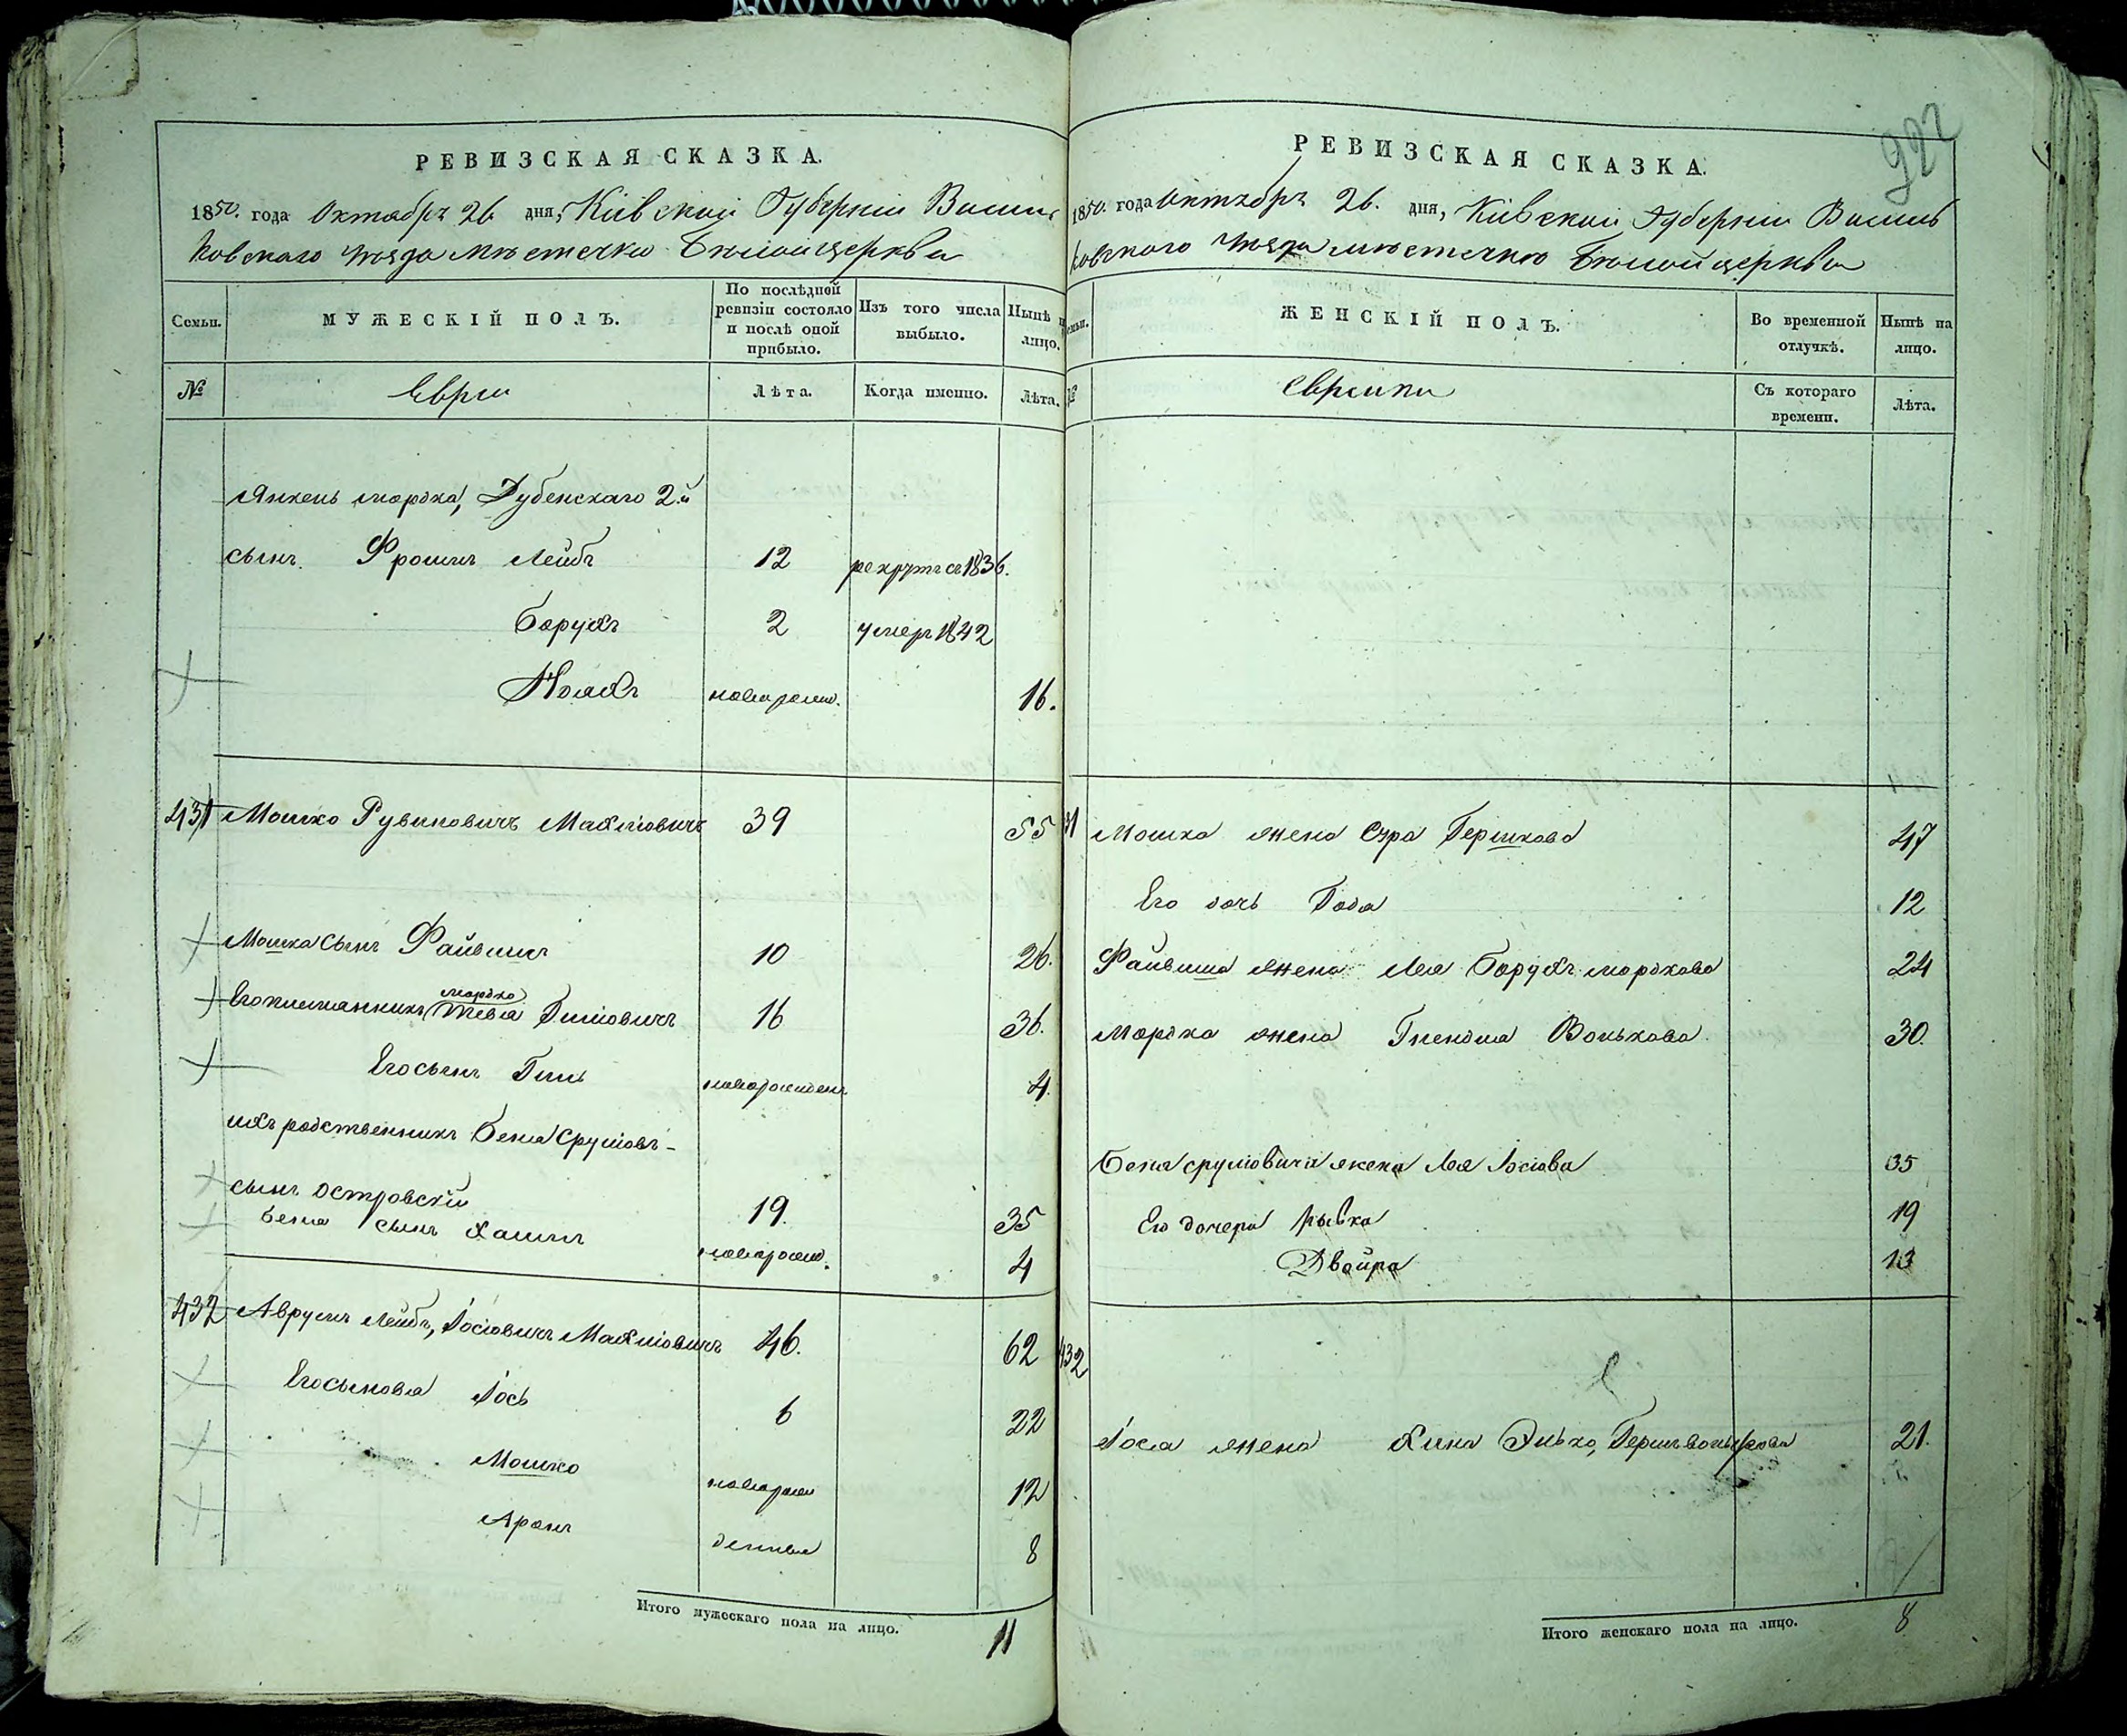 РЕВИЗСКАЯ СКАЗКА.
1850. года Октября 26 дня, Кіевской Губерніи Василь
ковскаго Уѣзда Мѣстечка Бѣлой церкви
Семьи.
МУЖЕСКІЙ ПОЛЪ.
По послѣдней ревизіи состояло и послѣ оной прибыло.
Изъ того числа выбыло.
Нынѣ на лицо.
№
Евреи
Лѣта.
Когда именно.
Лѣта.
Янкель Мордка, Дубенскаго 2й
сынъ Фроимъ Лейбъ 12 рекрутъ съ 1836.
Борухъ 2 умеръ 1842
новорожд. 16.
431 Мошко Рувиновичъ Махліовичъ 39 55
Мошка сынъ Файвишъ 10 26.
Его племянникъ Мордко Тевіа Гилліовичъ 16 36.
Его сынъ Гиль новорожденъ 4.
ихъ родственникъ Беня Сруліовъ-
сынъ Островскій 19. 35
Беня сынъ Хаимъ новорожд. 4
432 Аврумъ Лейбъ, Іосіовичъ Махліовичъ 46. 62
Его сыновья Іось 6 22
Мошко новорож 12
Аронъ денные 8
Итого мужескаго пола на лицо. 11
922
РЕВИЗСКАЯ СКАЗКА.
1850. года Октября 26. дня, Кіевской Губерніи Василь
ковскаго Уѣзда мѣстечка Бѣлой церкви
Семьи.
ЖЕНСКІЙ ПОЛЪ.
Во временной отлучкѣ.
Нынѣ на лицо.
№
Еврейки
Съ котораго времени.
Лѣта.
431 Мошка жена Сура Гершкова 47
Его дочь Года 12
Файвиша жена Лея Борухъ Мордкова 24
Мордка жена Гнендля Волькова 30.
Беня Сруліовича жена Лея Іосіова 35
Его дочери Рывка 19
Двойра 13
432
Іося жена Хина Элько, Гершвольфова 21.
Итого женскаго пола на лицо. 8